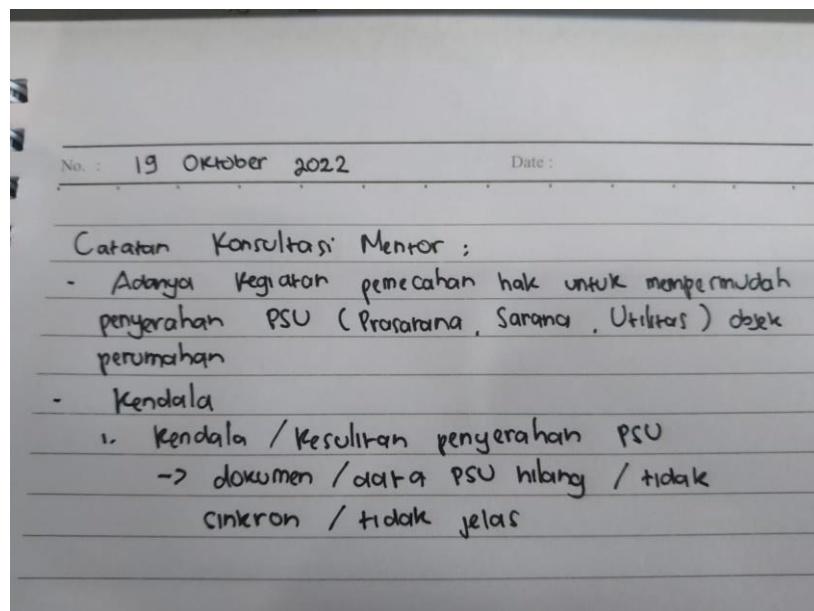 No. : 19 Oktober 2022 Date :
Catatan Konsultasi Mentor :
- Adanya kegiatan pemecahan hak untuk mempermudah
penyerahan PSU (Prasarana, Sarana, Utilitas) objek
perumahan
- Kendala
1. Kendala / kesulitan penyerahan PSU
-> dokumen / data PSU hilang / tidak
sinkron / tidak jelas